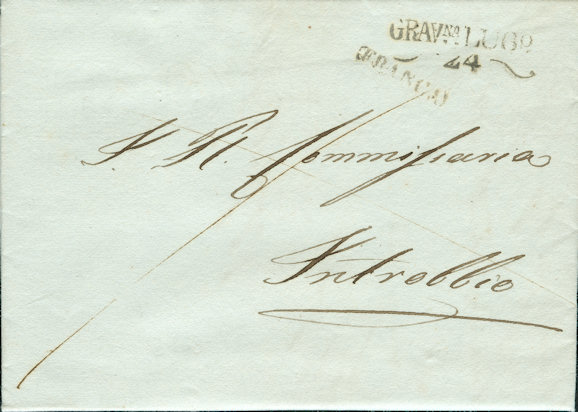 GRAV.NA LUGO
24
FRANCO
I. R. Commissaria
Introbbio